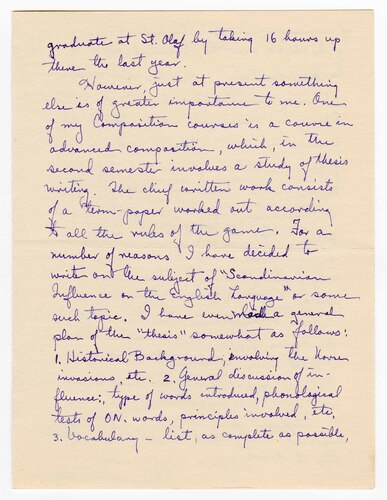 graduate at St. Olaf by taking 16 hours up
there the last year.
However, just at present something
else is of greater importance to me. One
of my Composition courses is a course in
advanced composition, which, in the
second semester involves a study of thesis
writing. The chief written work consists
of a term-paper worked out according
to all the rules of the game. For a
number of reasons I have decided to
write on the subject of "Scandinavian
Influence on the English Language" or some
such topic. I have even made a general
plan of the "thesis" somewhat as follows:
1. Historical Background, involving the Norse
invasions etc. 2. General discussion of in-
fluence:, type of words introduced, phonological
tests of ON. words, principles involved, etc.
3. Vocabulary – list, as complete as possible,